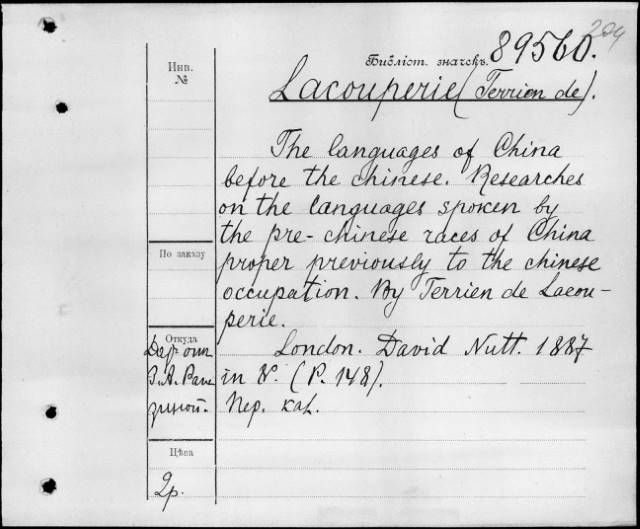 204
Библіот. значекъ. 89560.
Инв.
№
Lacouperie (Terrien de).
The languages of China
before the chinese. Researches
on the languages spoken by
the pre-chinese races of China
По заказу
proper previously to the chinese
occupation. By Terrien de Lacou-
perie.
Откуда
Дар от
London. David Nutt. 1887
in 8°. (P. 148).
Пер. кал.
Цѣна
2р.